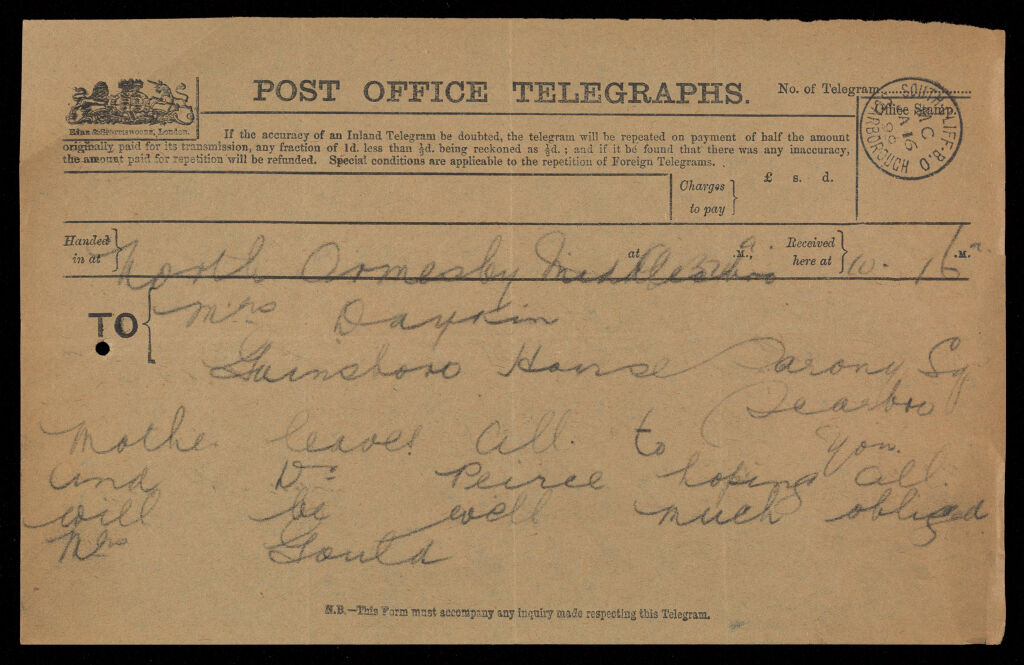 POST OFFICE TELEGRAPHS.
No. of Telegram
Office Stamp.
SOUTH CLIFF. B.O
C
MY 16
98
SCARBOROUGH
EYRE & SPOTTISWOODE, LONDON.
If the accuracy of an Inland Telegram be doubted, the telegram will be repeated on payment of half the amount
originally paid for its transmission, any fraction of 1d. less than ½d. being reckoned as ½d. ; and if it be found that there was any inaccuracy,
the amount paid for repetition will be refunded. Special conditions are applicable to the repetition of Foreign Telegrams.
Charges
to pay
£ s. d.
Handed
in at
North Ormesby Middlesbro
at
a .M.,
Received
here at
10. 16 a .M.
TO
Mrs Daykin
Gainsboro House Sq
Scarbro
Mother leaves all to you
and Dr Peirce hoping all
will be well much obliged
Mrs Gould
N.B.—This Form must accompany any inquiry made respecting this Telegram.